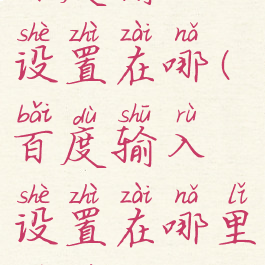 shè zhì zài nǎ
设置在哪(
bǎi dù shū rù
百度输入
shè zhì zài nǎ lǐ
设置在哪里